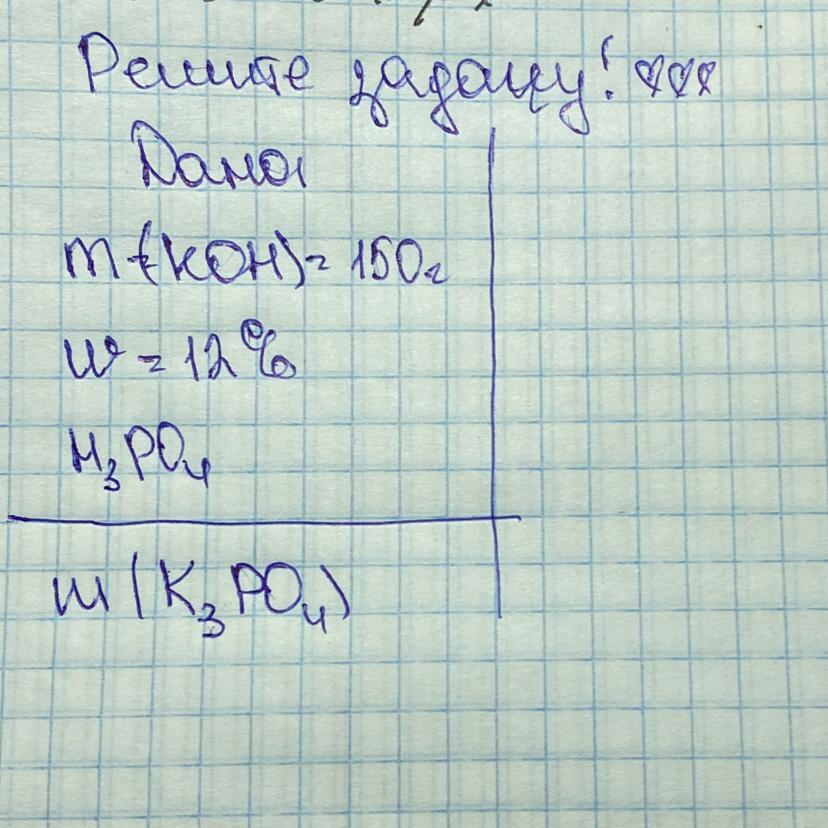 Решите задачу! ♡♡♡
Дано:
m (KOH) = 150г
W = 12%
H₃PO₄
m (K₃PO₄)